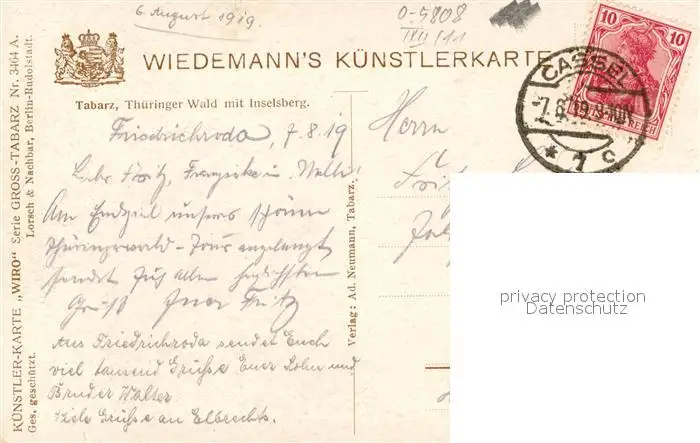 6. August 1919.
0-5808
WIEDEMANN'S KÜNSTLERKARTE
Tabarz, Thüringer Wald mit Inselsberg.
10 10
REICH
CASSEL
-7.8.19.
* 1 C
KÜNSTLER-KARTE „WIRO“ Serie GROSS-TABARZ Nr. 3464 A.
Ges. geschützt. Lorsch & Nachbar, Berlin-Rudolstadt.
Verlag: Ad. Neumann, Tabarz.
Friedrichroda, 7.8.19
Fritz,
Am Endziel unserer schönen
Thüringerwald-Tour angelangt
sendet Euch allen herzlichsten
Gruß Euer Fritz
Aus Friedrichroda sendet Euch
viel tausend Grüsse Euer Sohn und
Bruder Walter.
Viele Grüsse an Elbrechts.
Herrn
privacy protection
Datenschutz